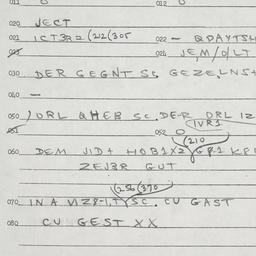 011 012
020 JECT
021 ICT3RZ(212(305 022 — QDAYTSL
023 024 JEM/OLT
030 DER GEGNT SS GEZELNST
040 —
050 )URL QHEB SC.DER DRL IZ
(IVR1
051 052 O
(210
060 DEM JID+ HOB1XZ GP1 KP
ZEJ3R GUT
(256(370
070 IN A VIZ8-I,T SC. CU GAST
080 CU GEST XX